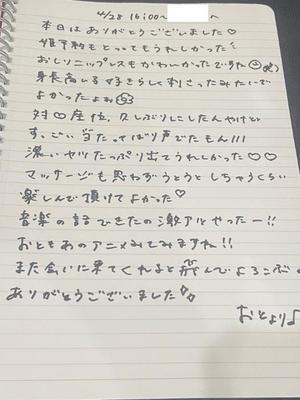 4/28 16:00〜 へ
本日はありがとうございました♡
姫予約もとってもうれしかった
おしりニップレスもかわいかったですね
身長高い好きらしく刺さったみたいで
よかったよね
対○座位、久しぶりにしたんやけど
すっごい当たってばり声でたもん!!!
濃いヤツたっぷり出てうれしかった♡♡
マッサージも思わずうとうとしちゃうくらい
楽しんで頂けてよかった♡
音楽の話できたの激アツやったー!!
おともあのアニメみてみますね!!
また会いに来てくれると飛んでよろこぶ
ありがとうございました
おとより♪